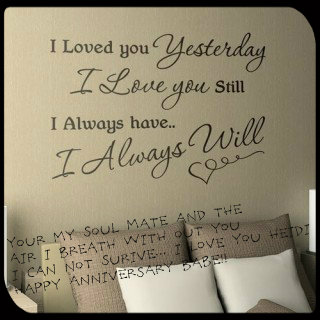 I Loved you Yesterday
I Love you Still
I Always have..
I Always Will
YOUR MY SOUL MATE AND THE
AIR I BREATH WITH OUT YOU
I CAN NOT SURIVE... I LOVE YOU HEIDI
HAPPY ANNIVERSARY BABE!!